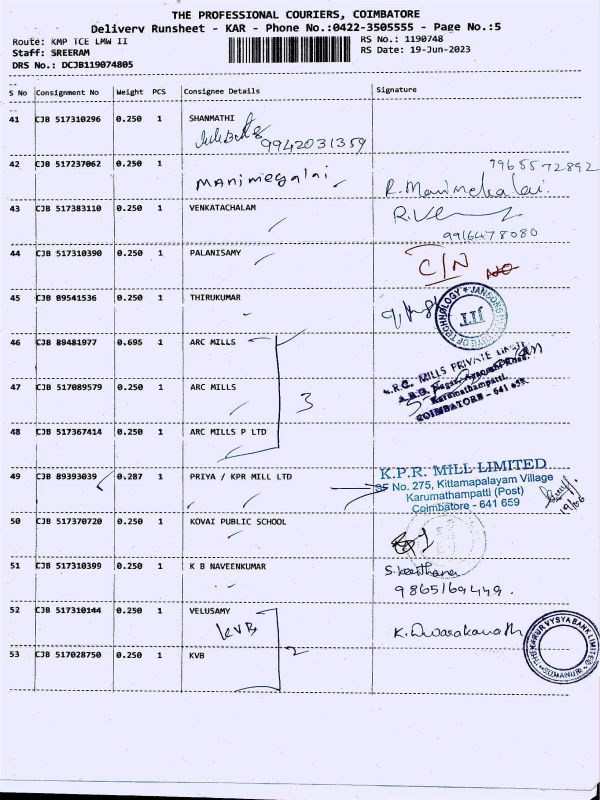 THE PROFESSIONAL COURIERS, COIMBATORE
Delivery Runsheet - KAR - Phone No.:0422-3505555 - Page No.:5
Route: KMP TCE LMW II
Staff: SREERAM
DRS No.: DCJB119074805
RS No.: 1190748
RS Date: 19-Jun-2023
S No Consignment No Weight PCS Consignee Details Signature
41 CJB 517310296 0.250 1 SHANMATHI
9942031359
42 CJB 517237062 0.250 1
Manimegalai
9965572892
R. Manimehalai.
43 CJB 517383110 0.250 1 VENKATACHALAM
9916478080
44 CJB 517310390 0.250 1 PALANISAMY
C/N NO
45 CJB 89541536 0.250 1 THIRUKUMAR
46 CJB 89481977 0.695 1 ARC MILLS
47 CJB 517089579 0.250 1 ARC MILLS
3
MILLS PRIVATE LIMITED
Karumathampatti,
COIMBATORE - 641 659
48 CJB 517367414 0.250 1 ARC MILLS P LTD
49 CJB 89393039 0.287 1 PRIYA / KPR MILL LTD
K.P.R. MILL LIMITED
SF No. 275, Kittamapalayam Village
Karumathampatti (Post)
Coimbatore - 641 659
19/06
50 CJB 517370720 0.250 1 KOVAI PUBLIC SCHOOL
51 CJB 517310399 0.250 1 K B NAVEENKUMAR
S. Keerthana
9865169449.
52 CJB 517310144 0.250 1 VELUSAMY
KVB
K. Dwarakanath
THE KARUR VYSYA BANK LIMITED
53 CJB 517028750 0.250 1 KVB
2